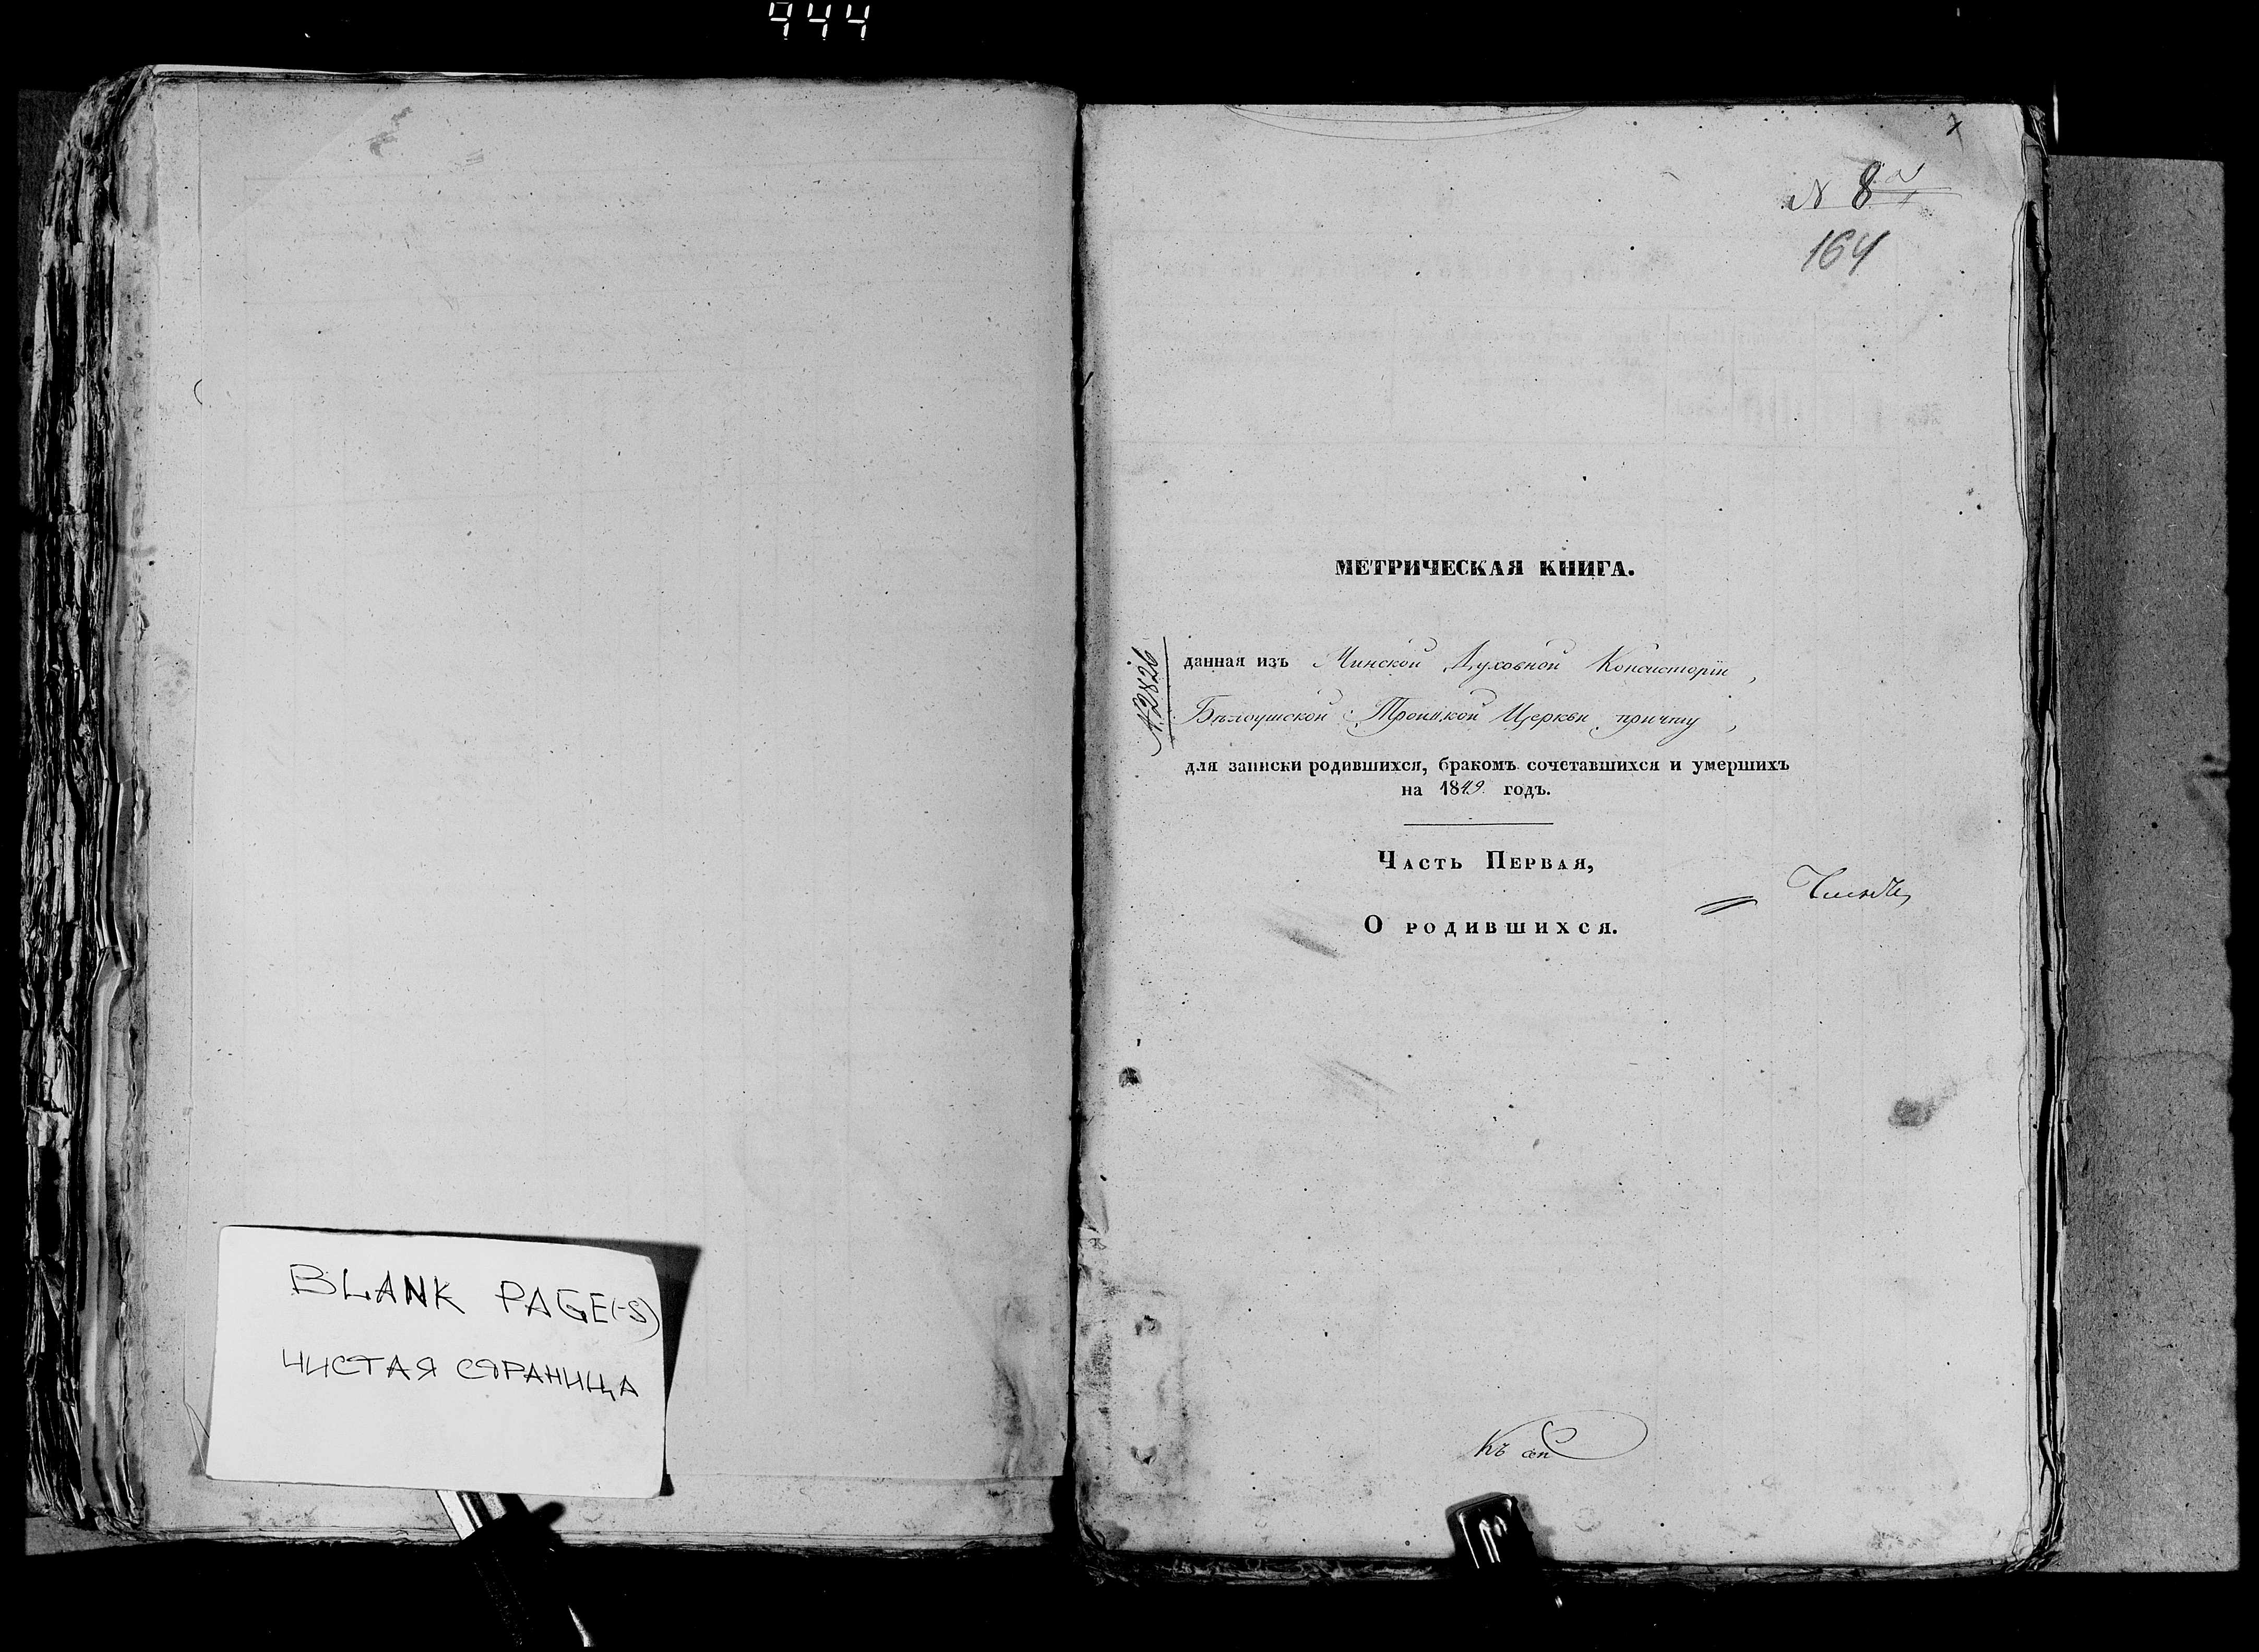 444
BLANK PAGE(-S)
ЧИСТАЯ СТРАНИЦА
N 8
164
МЕТРИЧЕСКАЯ КНИГА.
№ 2826
данная изъ Минской Духовной Консисторіи,
Бѣлоушской Троицкой Церкви причту,
для записки родившихся, бракомъ сочетавшихся и умершихъ
на 1849. годъ.
Часть Первая,
О родившихся.
Къ сей